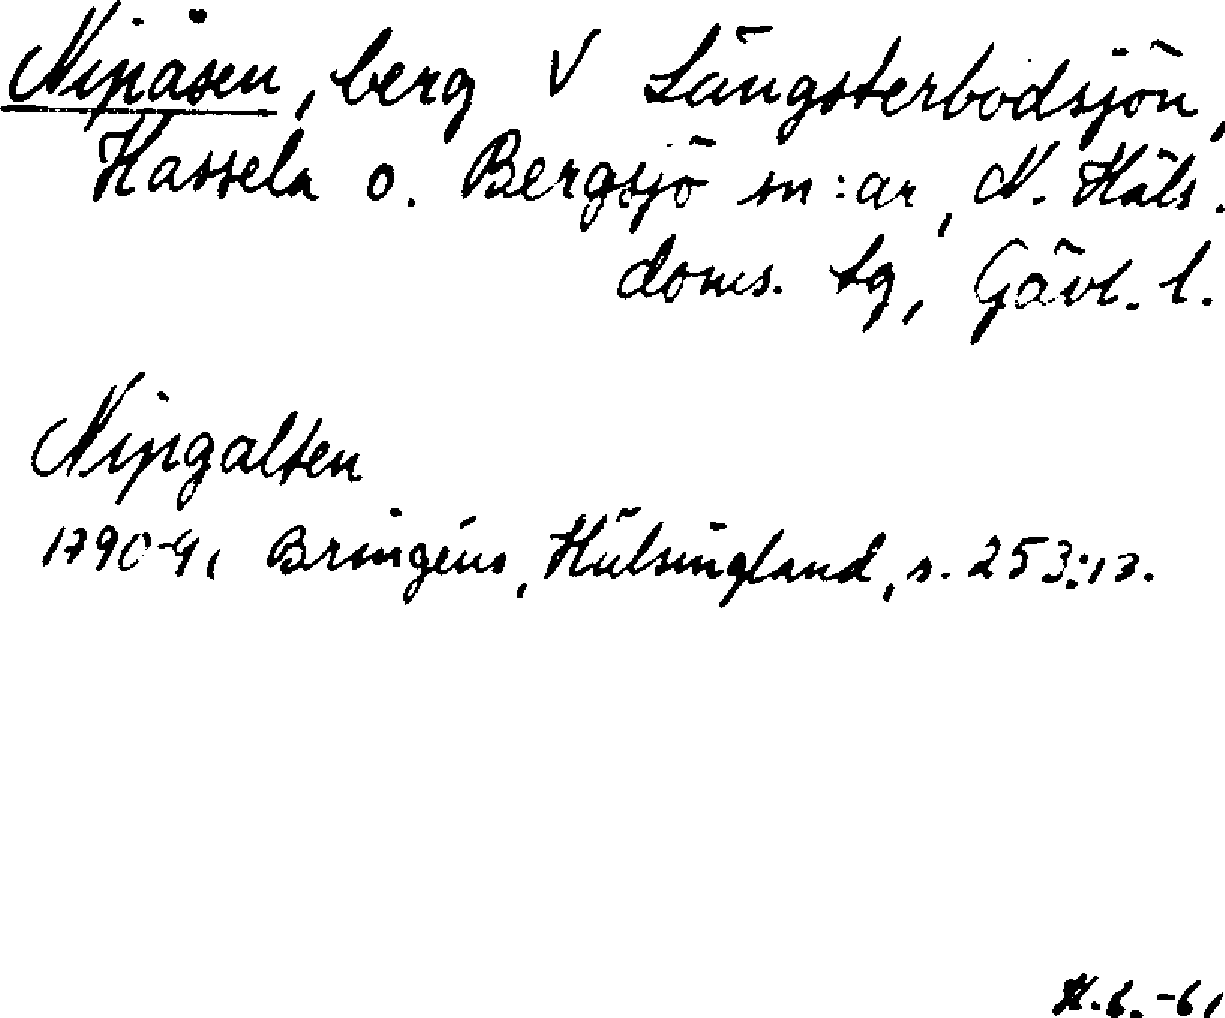 Nipåsen, berg V Långsterbodsjön,
Hassela o. Bergsjö sn:ar, N. Häls.
doms. tg, Gävl. l.
Nipgalten
1790-91 Bringéus, Hälsingland, s. 253:13.
H.B. -61